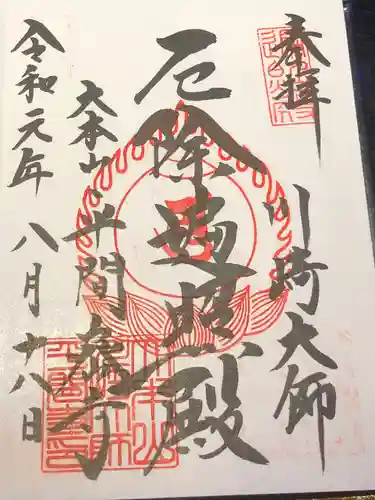 奉拝
川崎大師
厄除遍照殿
大本山
平間寺
令和元年
八月十八日